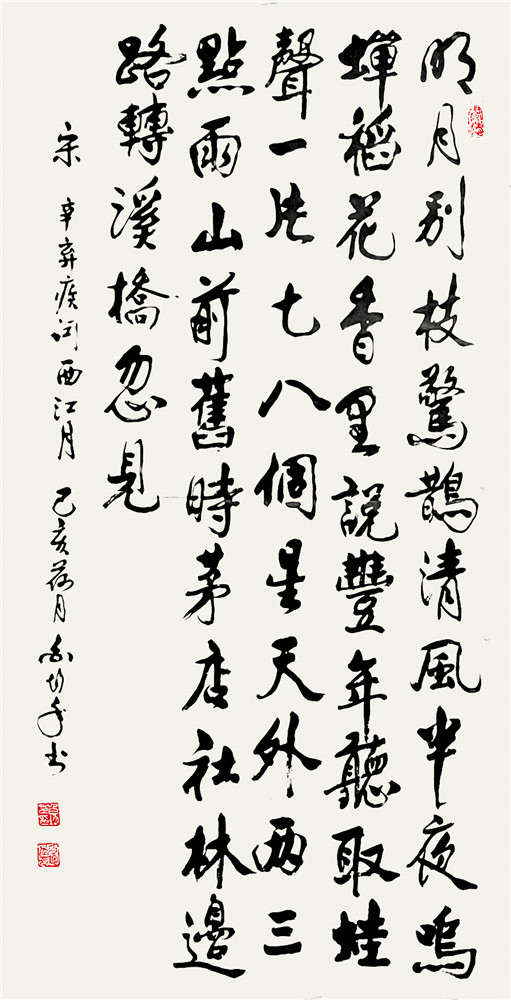 明月别枝驚鵲清風半夜鳴
蟬稻花香里說豐年聽取蛙
聲一片七八個星天外两三
點雨山前舊時茅店社林邊
路轉溪橋忽見
宋 辛弃疾词西江月 己亥荷月 书